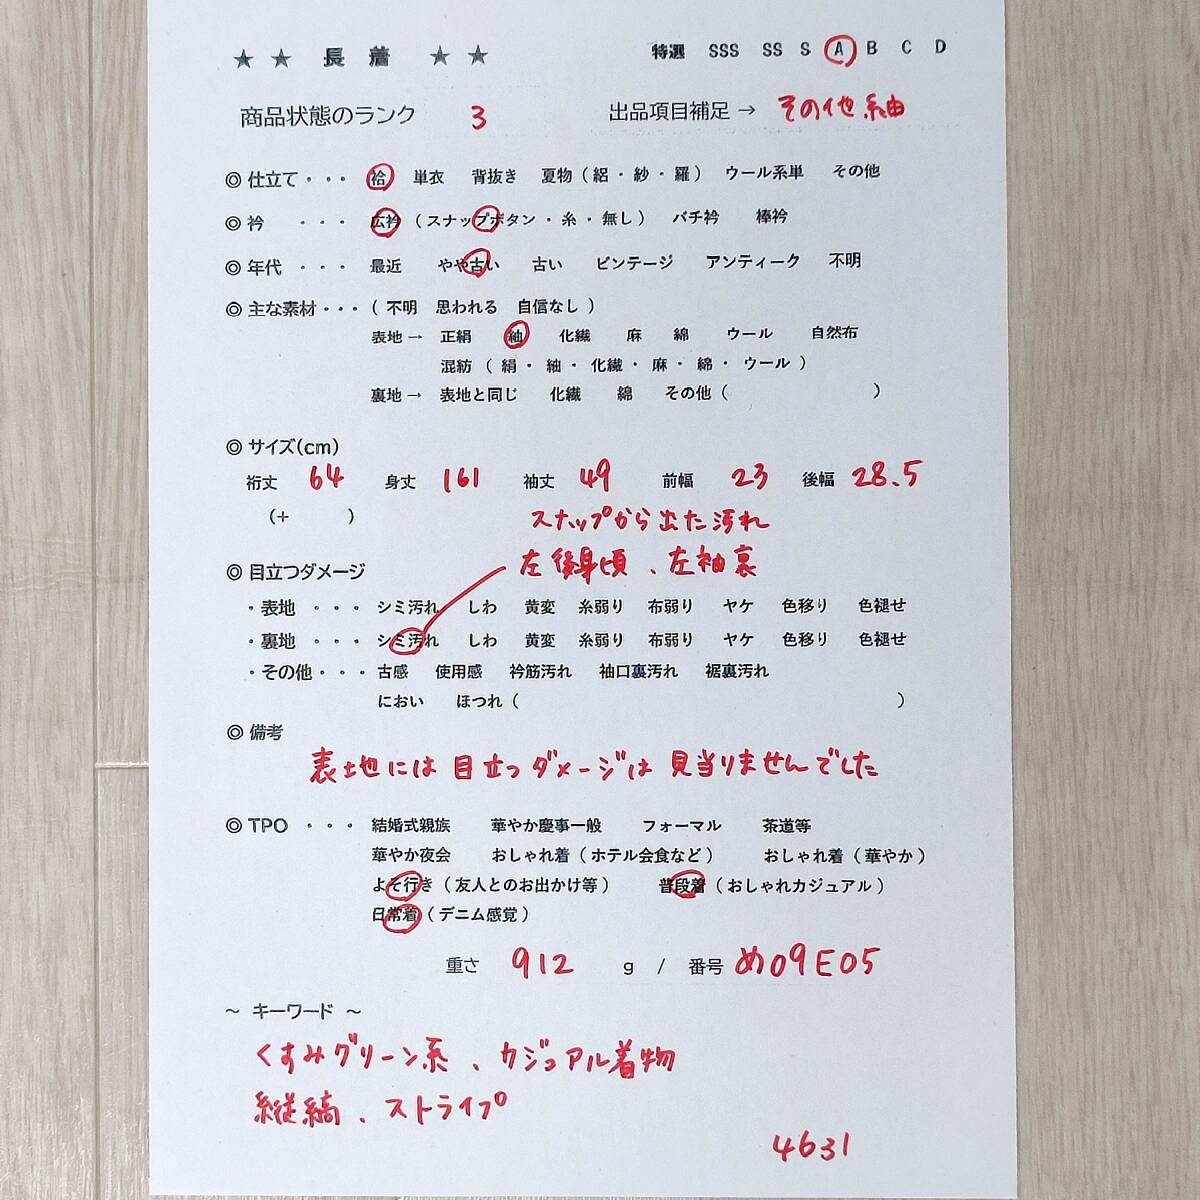 ★ ★ 長 着 ★ ★ 特選 SSS SS S A B C D
商品状態のランク 3 出品項目補足 → その他 紬
◎ 仕立て ・・・ 袷 単衣 背抜き 夏物 ( 絽 ・ 紗 ・ 羅 ) ウール系単 その他
◎ 衿 ・・・ 広衿 ( スナップボタン ・ 糸 ・ 無し ) バチ衿 棒衿
◎ 年代 ・・・ 最近 やや古い 古い ビンテージ アンティーク 不明
◎ 主な素材 ・・・ ( 不明 思われる 自信なし )
表地 → 正絹 紬 化繊 麻 綿 ウール 自然布
混紡 ( 絹 ・ 紬 ・ 化繊 ・ 麻 ・ 綿 ・ ウール )
裏地 → 表地と同じ 化繊 綿 その他 ( )
◎ サイズ(cm)
裄丈 64 身丈 161 袖丈 49 前幅 23 後幅 28.5
(+ )
スナップから出た汚れ
左後身頃 、左袖裏
◎ 目立つダメージ
・表地 ・・・ シミ汚れ しわ 黄変 糸弱り 布弱り ヤケ 色移り 色褪せ
・裏地 ・・・ シミ汚れ しわ 黄変 糸弱り 布弱り ヤケ 色移り 色褪せ
・その他 ・・・ 古感 使用感 衿筋汚れ 袖口裏汚れ 裾裏汚れ
におい ほつれ ( )
◎ 備考
表地には 目立つダメージは 見当りませんでした
◎ TPO ・・・ 結婚式親族 華やか慶事一般 フォーマル 茶道等
華やか夜会 おしゃれ着 ( ホテル会食など ) おしゃれ着 ( 華やか )
よそ行き ( 友人とのお出かけ等 ) 普段着 ( おしゃれカジュアル )
日常着 ( デニム感覚 )
重さ 912 g / 番号 め09E05
~ キーワード ~
くすみグリーン系 、カジュアル着物
縦縞 、ストライプ
4631